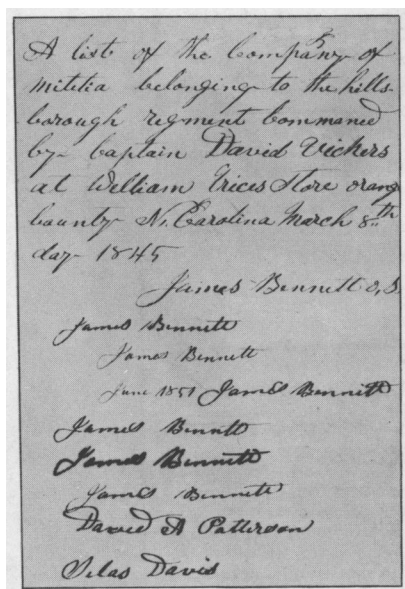 A list of the Company of
militia belonging to the hills-
borough regment Commaned
by Captain David Vickers
at William Trices Store orang
County N. Carolina March 8th
day 1845
James Bennett O,S
James Bennett
James Bennett
June 1851 James Bennitt
James Bennett
James Bennett
James Bennett
David A Patterson
Silas Davis